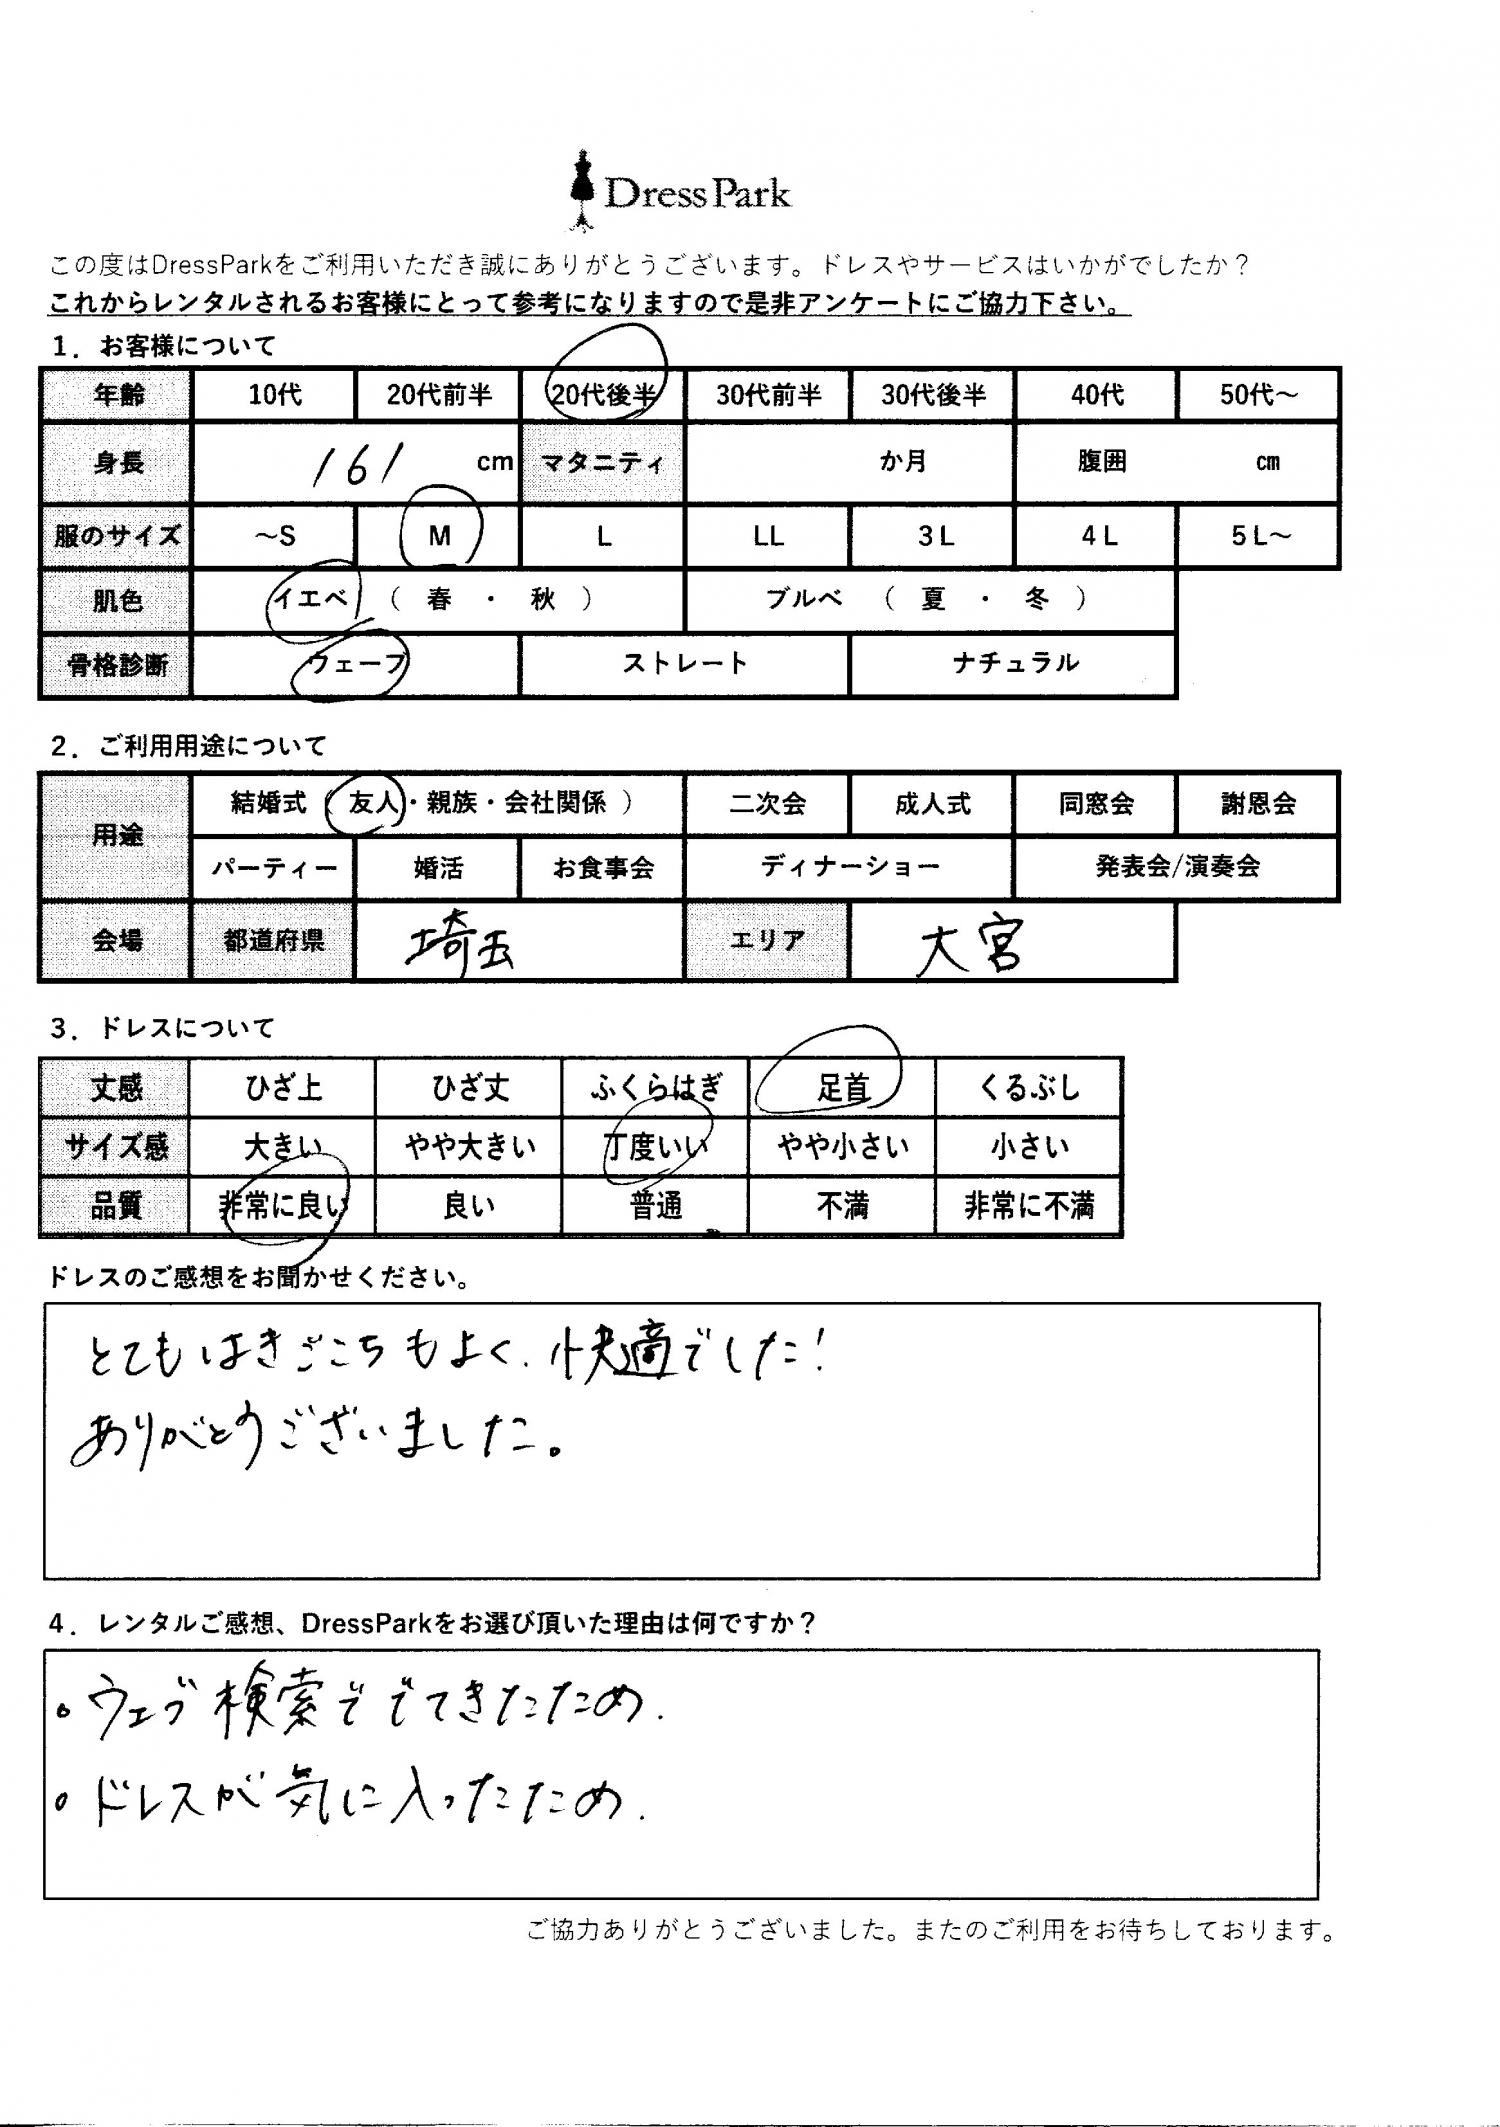 DressPark
この度はDressParkをご利用いただき誠にありがとうございます。ドレスやサービスはいかがでしたか？
これからレンタルされるお客様にとって参考になりますので是非アンケートにご協力下さい。
1．お客様について
年齢 10代 20代前半 20代後半 30代前半 30代後半 40代 50代～
身長 161 cm マタニティ か月 腹囲 cm
服のサイズ ～S M L LL 3L 4L 5L～
肌色 イエベ （ 春 ・ 秋 ） ブルベ （ 夏 ・ 冬 ）
骨格診断 ウェーブ ストレート ナチュラル
2．ご利用用途について
用途 結婚式（ 友人・親族・会社関係 ） 二次会 成人式 同窓会 謝恩会
パーティー 婚活 お食事会 ディナーショー 発表会/演奏会
会場 都道府県 埼玉 エリア 大宮
3．ドレスについて
丈感 ひざ上 ひざ丈 ふくらはぎ 足首 くるぶし
サイズ感 大きい やや大きい 丁度いい やや小さい 小さい
品質 非常に良い 良い 普通 不満 非常に不満
ドレスのご感想をお聞かせください。
とてもはきごこちもよく、快適でした！
ありがとうございました。
4．レンタルご感想、DressParkをお選び頂いた理由は何ですか？
・ウェブ検索ででてきたため.
・ドレスが気に入ったため.
ご協力ありがとうございました。またのご利用をお待ちしております。